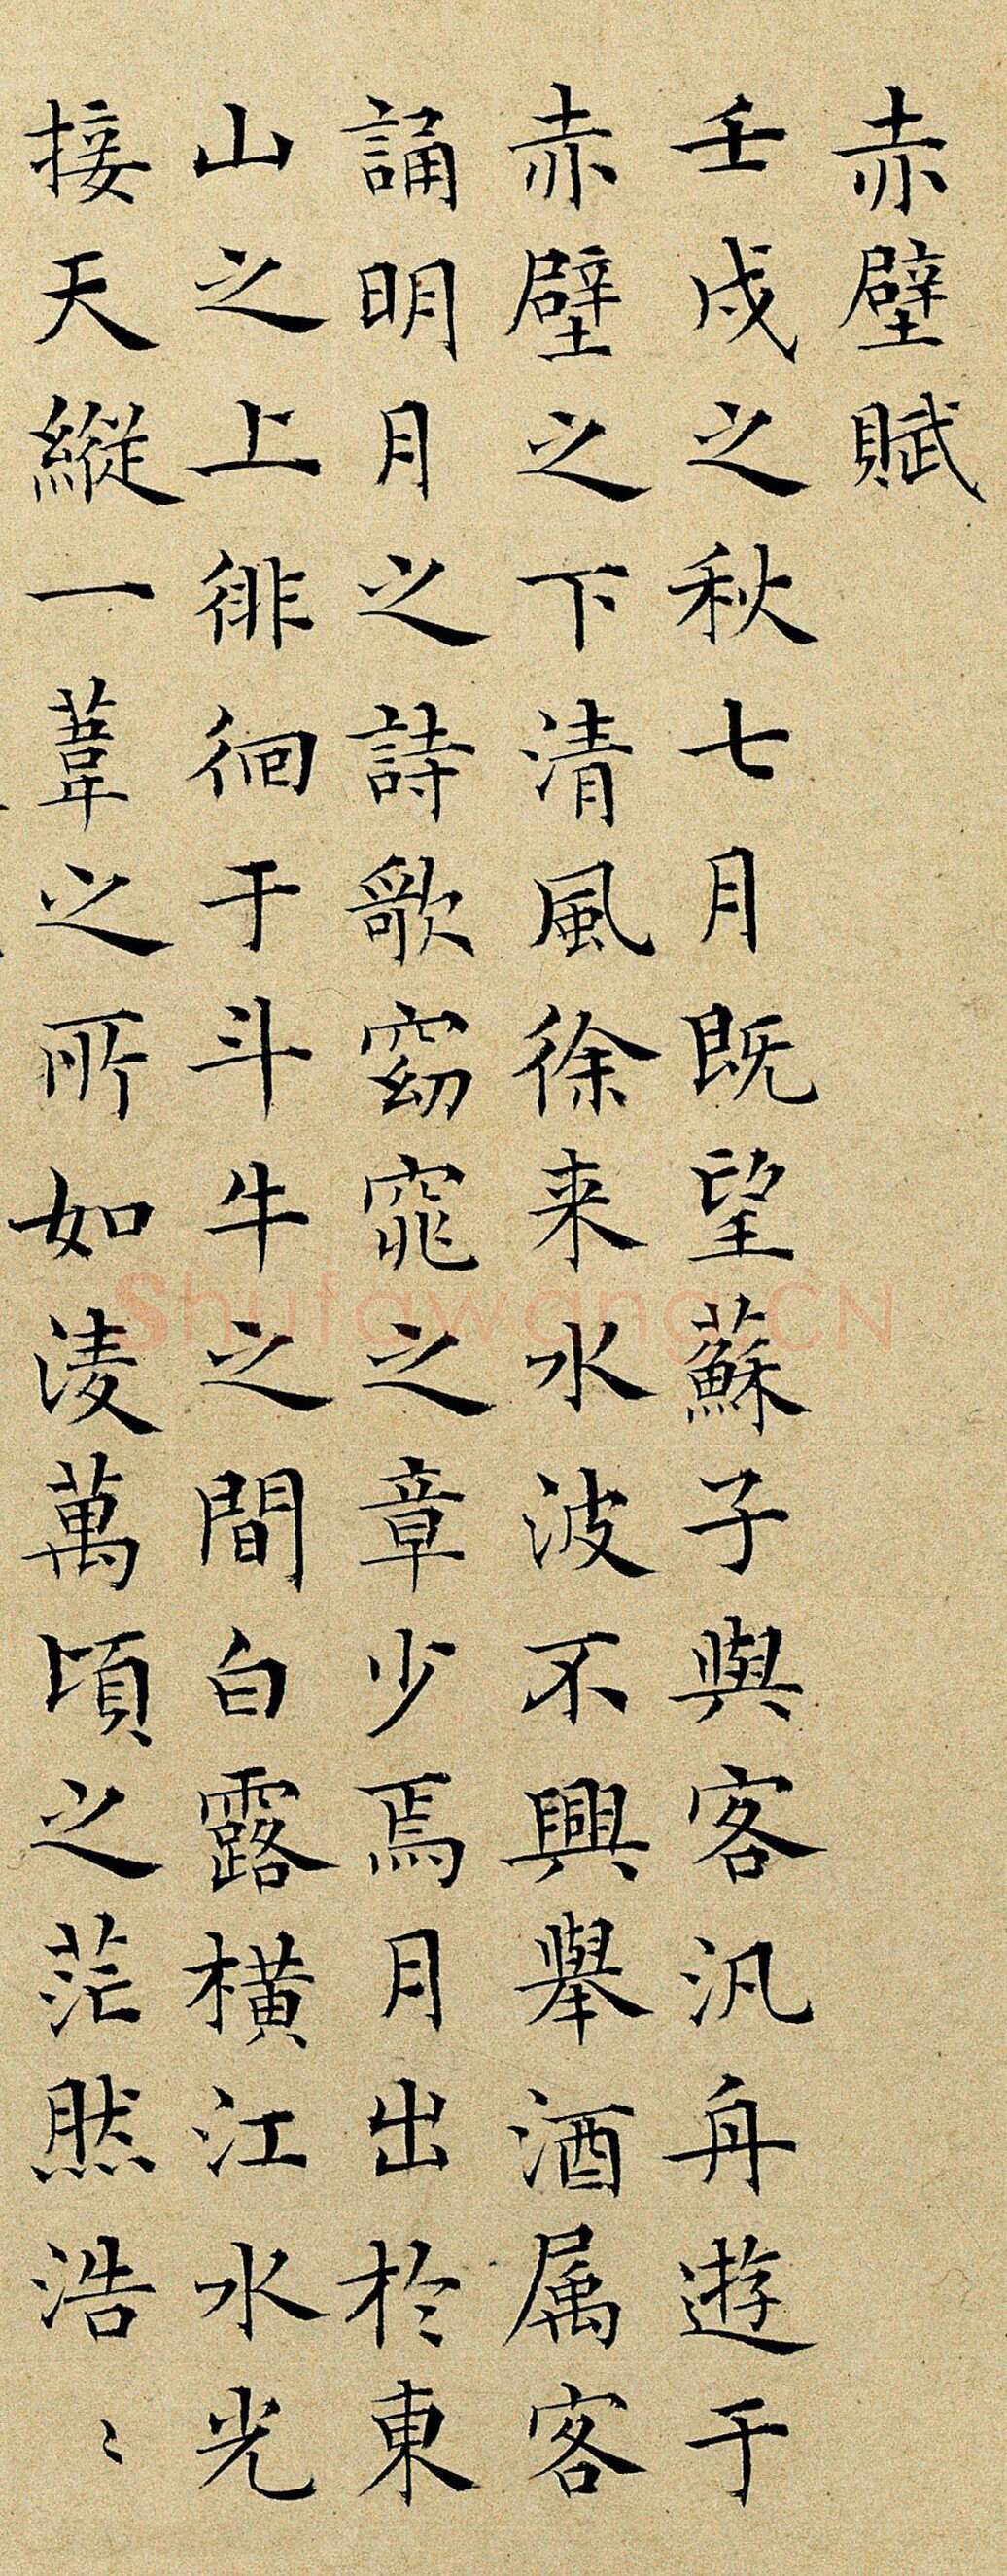 赤壁賦
壬戌之秋七月既望蘇子與客汎舟遊于
赤壁之下清風徐来水波不興舉酒属客
誦明月之詩歌窈窕之章少焉月出於東
山之上徘徊于斗牛之間白露橫江水光
接天縱一葦之所如淩萬頃之茫然浩〻
Shufawang.CN